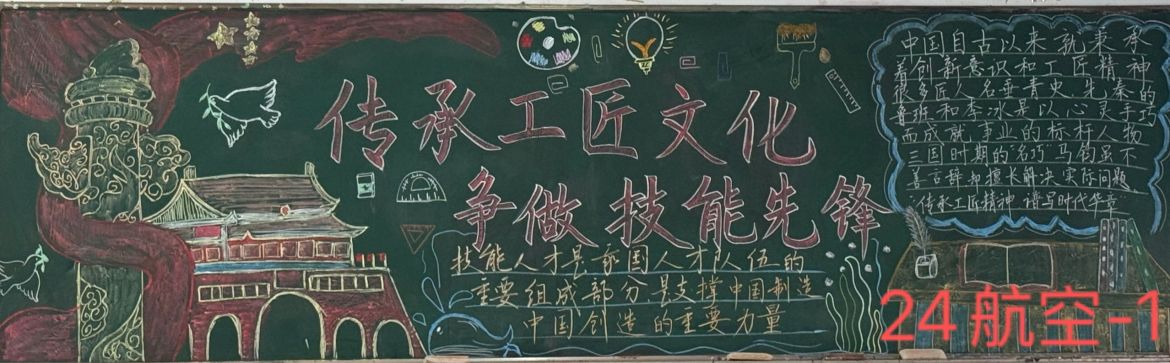 传承工匠文化
争做技能先锋
技能人才是我国人才队伍的
重要组成部分,是支撑中国制造
中国创造的重要力量
中国自古以来就秉承
着创新意识和工匠精神
很多匠人名垂青史,先秦的
鲁班和李冰是以心灵手巧
而成就事业的标杆人物
三国时期的"名巧"马钧虽不
善言辞却擅长解决实际问题
"传承工匠精神 谱写时代华章"
24航空-1